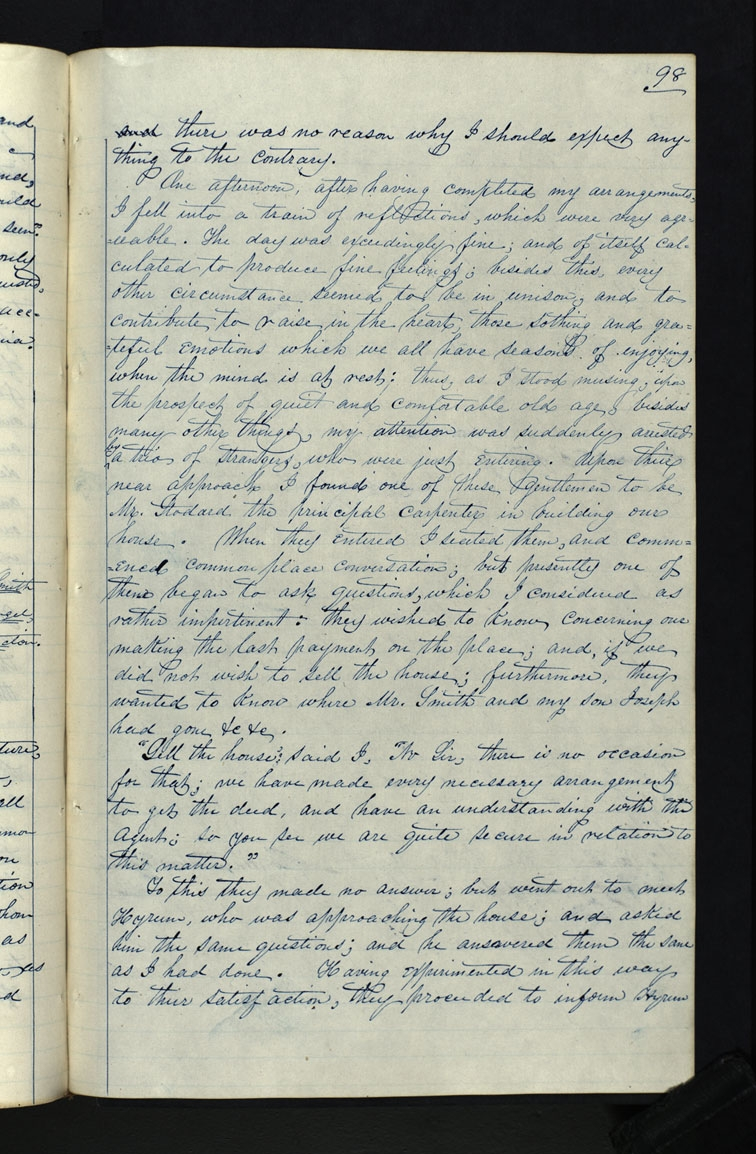 98
and there was no reason why I should expect any-
thing to the contrary.
One afternoon, after having completed my arrangements,
I fell into a train of reflections, which were very agr-
=eeable. The day was exceedingly fine; and of itself cal-
culated to produce fine feelings; besides this, every
other circumstance seemed to be in unison, and to
contribute, to raise in the heart, those sothing and gra=
=teful emotions which we all have seasons of enjoying,
when the mind is at rest: thus, as I stood musing, upon
the prospect of quiet and comfortable old age, besides
many other things, my attention was suddenly arrested
by a trio of strangers, who were just entering. Upon their
near approach I found one of these gentlemen to be
Mr. Stodard, the principal carpenter in building our
house. When they entered I seated them, and comm=
=enced common place conversation; but presently one of
them began to ask questions, which I considered as
rather impertinent: they wished to know, concerning our
making the last payment on the place; and, if we
did not wish to sell the house; furthermore, they
wanted to know where Mr. Smith and my son Joseph
had gone &c &c.
"Sell the house; said I, "No Sir, there is no occasion
for that; we have made every necessary arrangement
to get the deed, and have an understanding with the
Agent; so you see we are quite secure in relation to
this matter."
To this they made no answer; but went out to meet
Hyrum, who was approaching the house; and asked
him the same questions; and he answered them the same
as I had done. Having expirimented in this way,
to their satisfaction, they proceeded to inform Hyrum
and
c
seen."
only
Smith
ture,
all
on
tion
whom
as
d